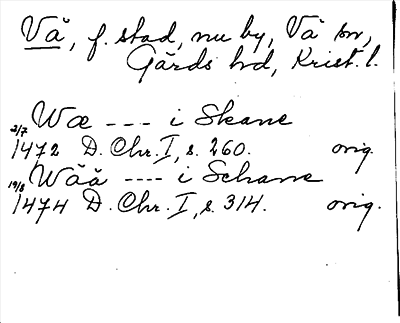 Vä, f. stad, nu by, Vä sn,
Gärds hd, Krist. l.
Wæ --- i Skane
2/7 1472 D. Chr. I, s. 260. orig.
Wää ---- i Schane
19/8 1474 D. Chr. I, s. 314. orig.